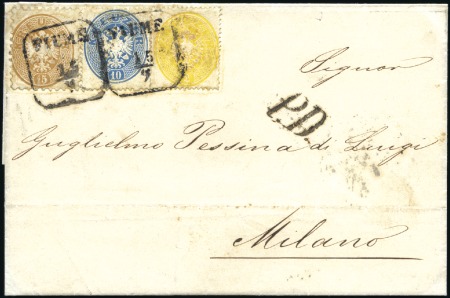 FIUME FIUME
15 15
7 7
15 10
Signor
P.D.
Guglielmo Pessina di Luigi
Milano